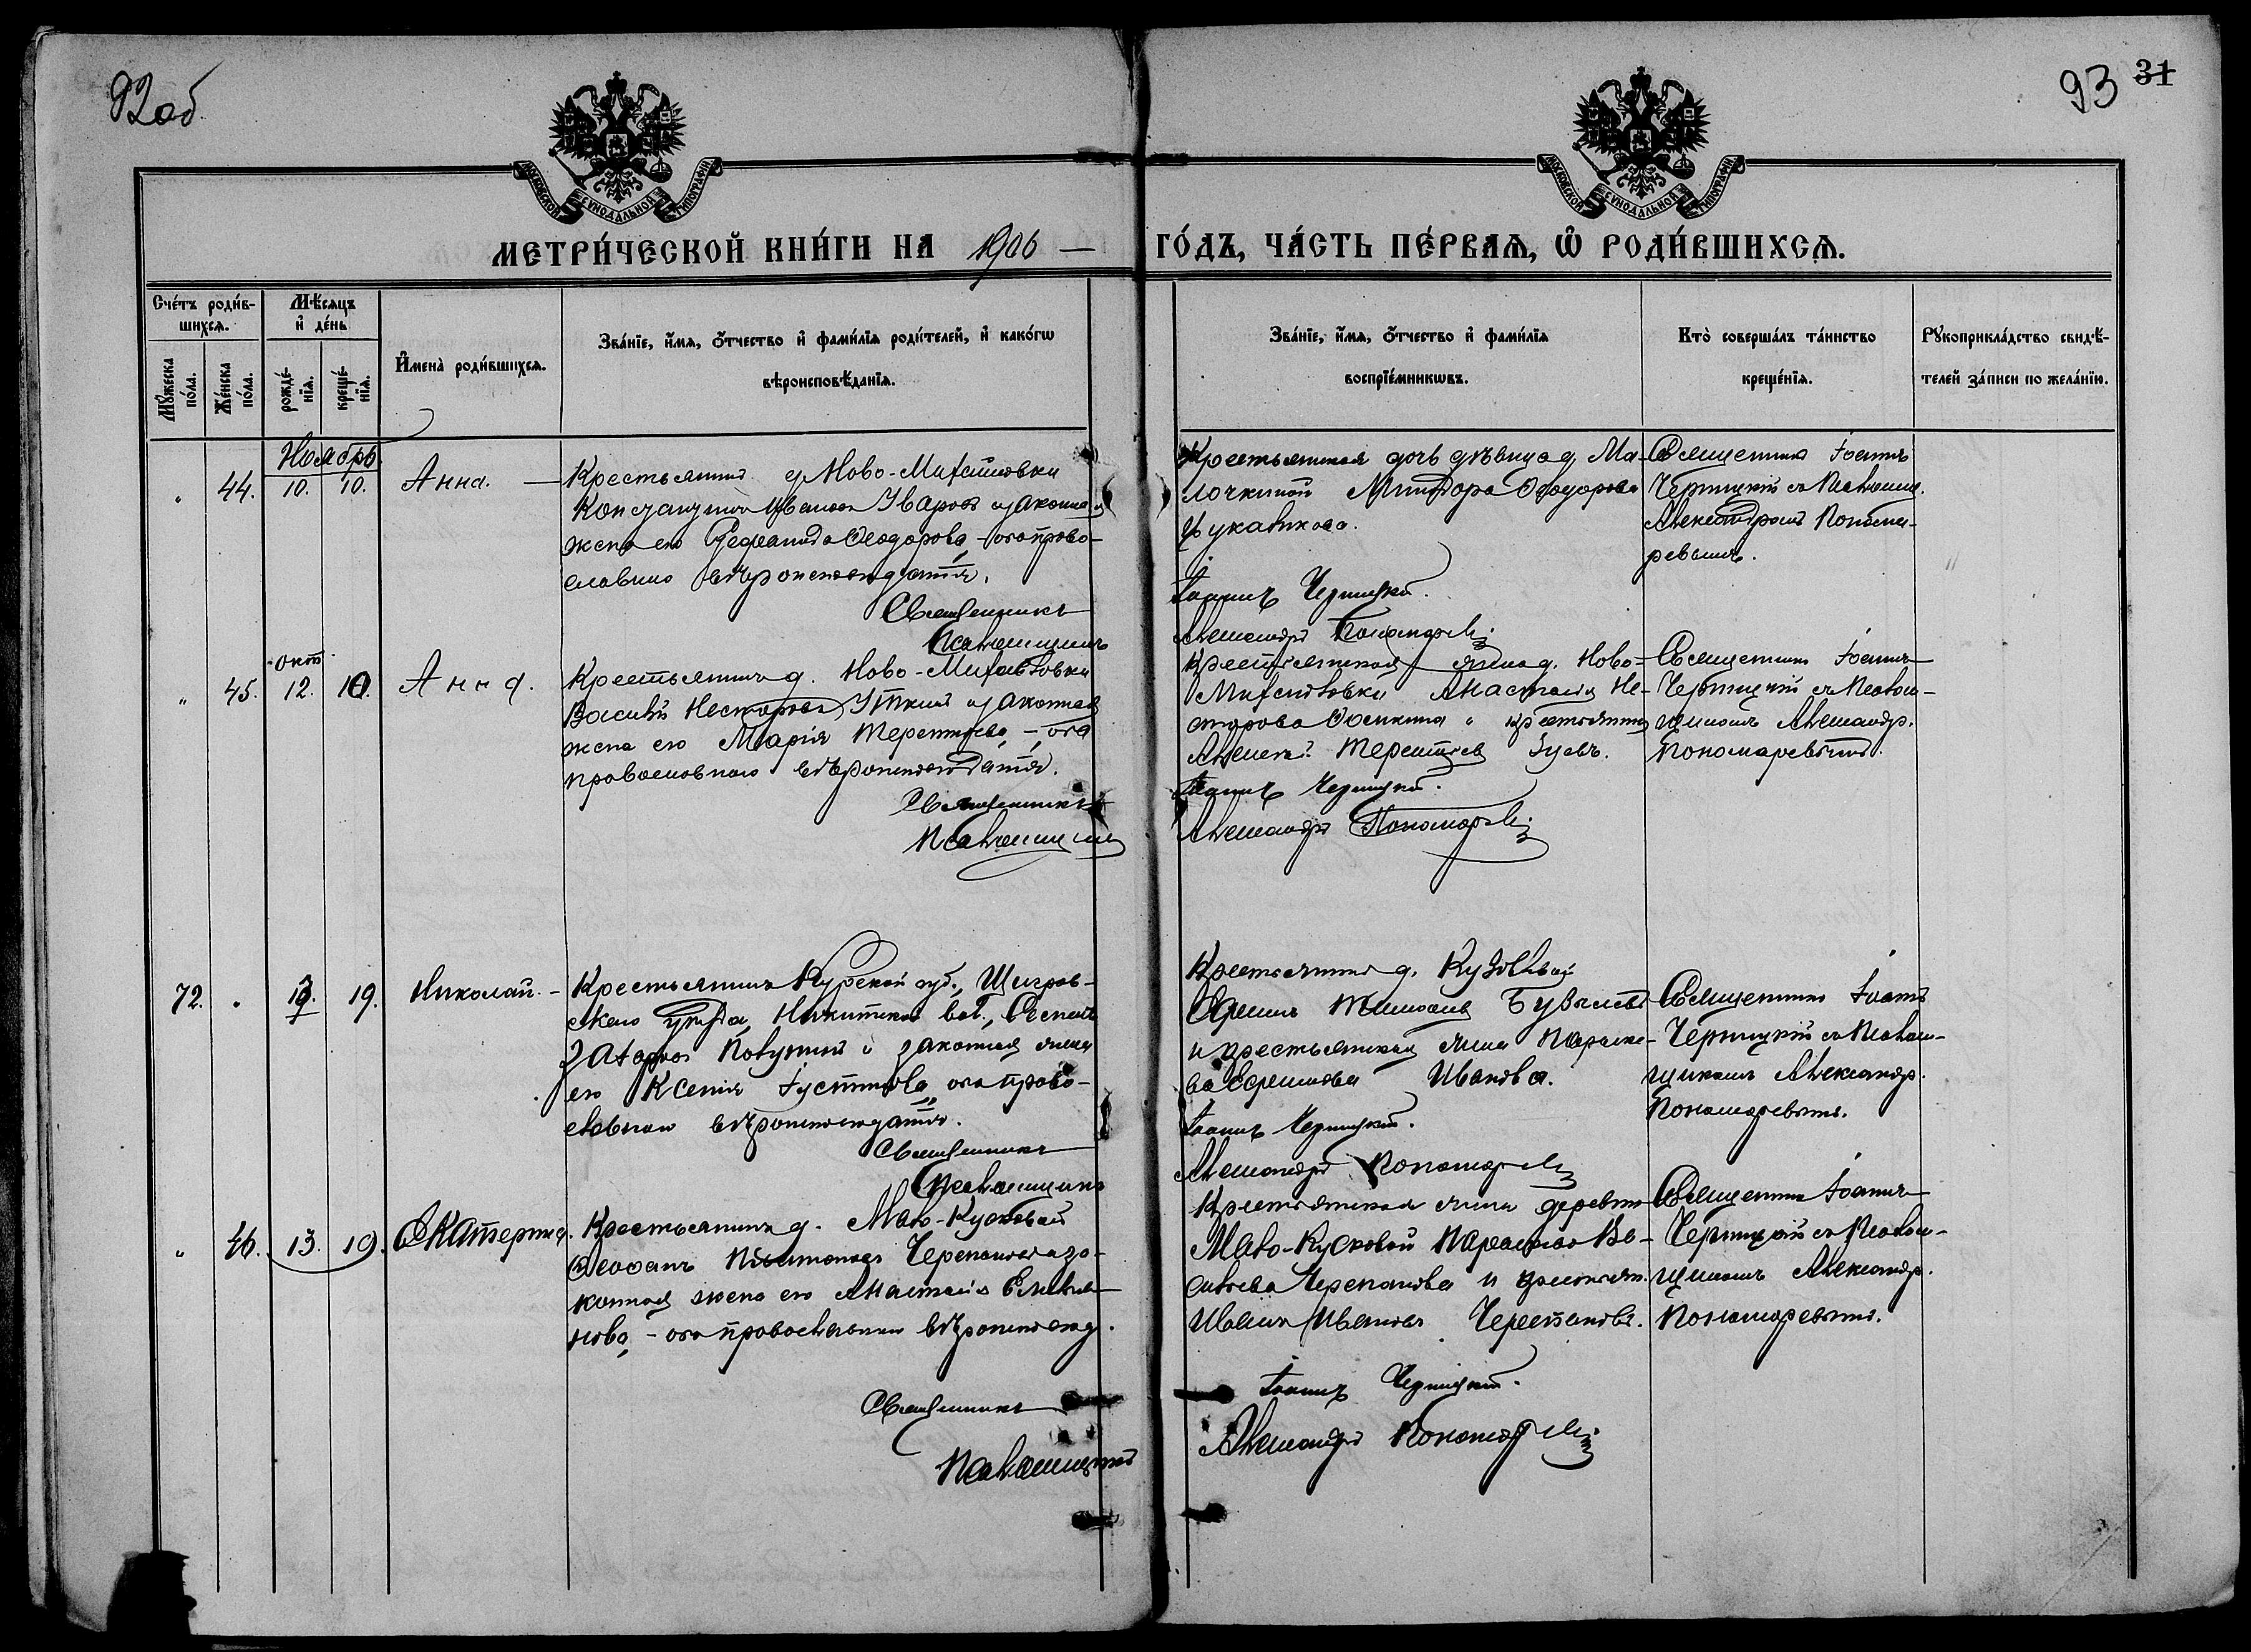 92 об
93 31
МОСКОВСКОЙ СѴНОДАЛЬНОЙ ТИПОГРАФІИ
МОСКОВСКОЙ СѴНОДАЛЬНОЙ ТИПОГРАФІИ
МЕТРИ́ЧЕСКОЙ КНИ́ГИ НА 1906 — ГО́ДЪ, ЧА́СТЬ ПЕ́РВАЯ, Ѡ РОДИ́ВШИХСЯ.
Сче́тъ роди́в-
шихся.
Мѣ́сяцъ
и де́нь
Мꙋ́жеска по́ла.
Же́нска по́ла.
рожде́-
нїя.
креще́-
нїя.
Имена̀ роди́вшихся.
Зва́нїе, и́мя, о́тчество и фами́лїя роди́телей, и како́гѡ
вѣроисповѣ́данїя.
Зва́нїе, и́мя, о́тчество и фами́лїя
воспрїе́мникѡвъ.
Кто̀ соверша́лъ та́инство
креще́нїя.
Рꙋкоприкла́дство свидѣ́-
телей за́писи по жела́нїю.
Ноябрь.
" 44. 10. 10. Анна. —
Крестьянинъ д. Ново-Михайловки
Иванов Уваровъ и законная
жена его Феодорова, — оба право-
славнаго вѣроисповѣданія.
Священникъ
Крестьянская дочь дѣвица д. Ма-
лочкиной Феодорова
Цуканикова.
Іоаннъ Черницкій.
Александръ Пономаревъ
Священникъ Іоаннъ
Черницкій съ
Александромъ Понома-
ревымъ.
"
окт
" 45. 12. 10. Анна.
Крестьянинъ д. Ново-Михайловки
Василій Несторовъ Уткинъ и законная
жена его Марія Терентьева, — оба
православнаго вѣроисповѣданія.
Священникъ
Крестьянская жена д. Ново-
Михайловки Анастасія Не-
сторова и крестьянинъ
Алексѣй Терентьев Зуевъ.
Іоаннъ Черницкій.
Александръ Пономаревъ
Священникъ Іоаннъ
Черницкій съ
Александр.
Пономаревымъ.
72. " 13. 19. Николай. —
Крестьянинъ Курской губ., Щигров-
скаго уѣзда, Никитской вол.,
Захаров и законная жена
его Ксенія Іустинова, оба право-
славнаго вѣроисповѣданія.
Священникъ
Крестьянинъ д.
Ефимъ
и крестьянская жена Параске-
ва Ефимова Иванова.
Іоаннъ Черницкій.
Александръ Пономаревъ
Священникъ Іоаннъ
Черницкій съ
Александр.
Пономаревымъ.
" 46. 13. 19. Екатерина.
Крестьянинъ д. Мало-Кусковой
Феофанъ Черепановъ и за-
конная жена его Анастасія
— оба православнаго вѣроисповѣд.
Священникъ
Крестьянская жена деревни
Мало-Кусковой Параскева Ва-
сильева Черепанова и крестьян.
Иванъ Ивановъ Черепановъ.
Іоаннъ Черницкій.
Александръ Пономаревъ
Священникъ Іоаннъ
Черницкій съ
Александр.
Пономаревымъ.